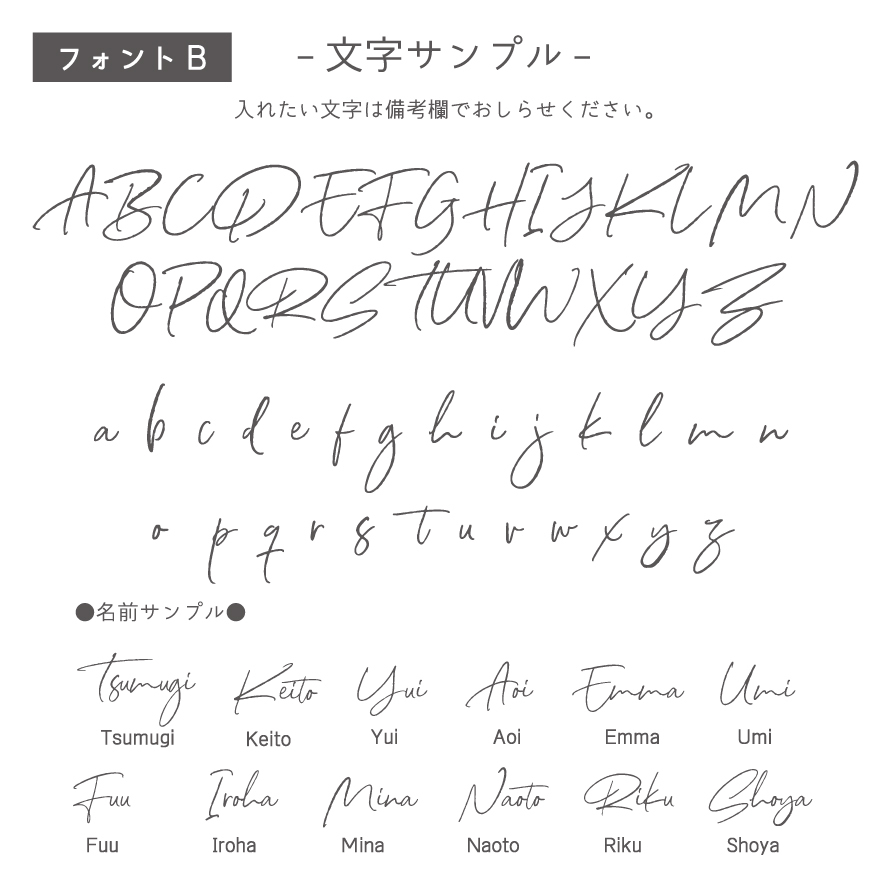 フォントB
– 文字サンプル –
入れたい文字は備考欄でおしらせください。
ABCDEFGHIJKLMN
OPQRSTUVWXYZ
a b c d e f g h i j k l m n
o p q r s t u v w x y z
●名前サンプル●
Tsumugi Keito Yui Aoi Emma Umi
Tsumugi Keito Yui Aoi Emma Umi
Fuu Iroha Mina Naoto Riku Shoya
Fuu Iroha Mina Naoto Riku Shoya